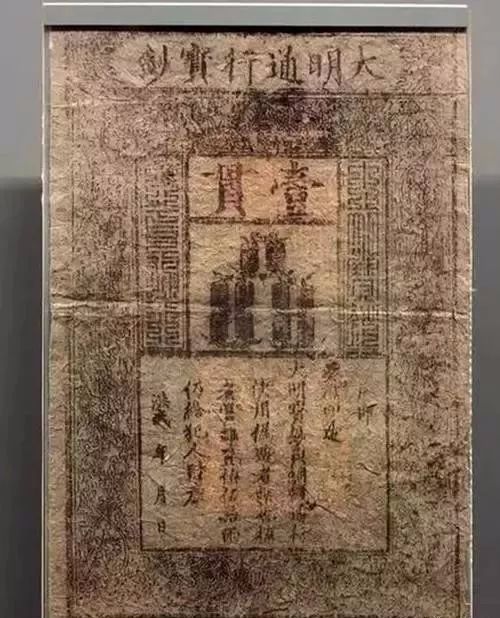 大明通行寳鈔
壹貫
奏准印造
大明寳鈔與銅錢通行
使用僞造者斬告捕
者賞銀貳伯伍拾兩
仍給犯人財產
洪武 年 月 日